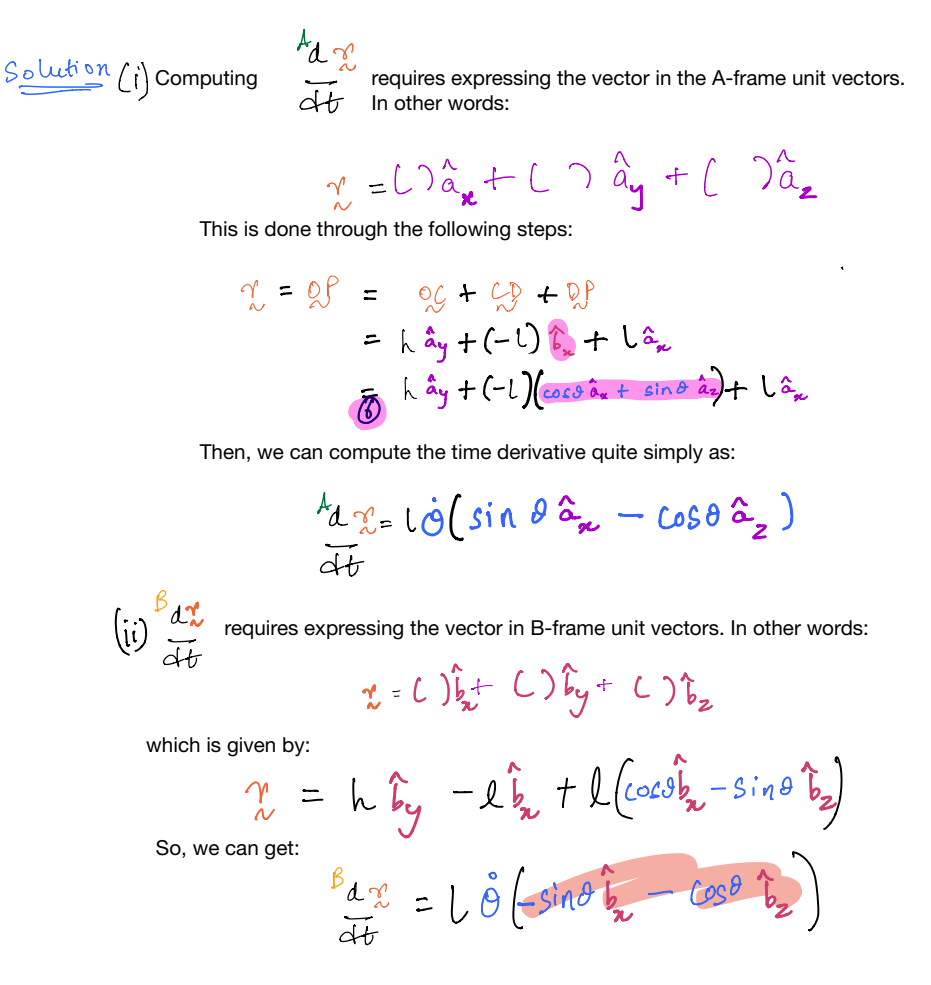 Solution (i) Computing ᴬdr/dt requires expressing the vector in the A-frame unit vectors.
In other words:
r = ( ) âₓ + ( ) â_y + ( ) â_z
This is done through the following steps:
r = OP = OC + CD + DP
= h â_y + (-l) b̂ₓ + l âₓ
= h â_y + (-l)(cosθ âₓ + sinθ â_z) + l âₓ
Then, we can compute the time derivative quite simply as:
ᴬdr/dt = l θ̇ (sin θ âₓ − cosθ â_z)
(ii) ᴮdr/dt requires expressing the vector in B-frame unit vectors. In other words:
r = ( ) b̂ₓ + ( ) b̂_y + ( ) b̂_z
which is given by:
r = h b̂_y − l b̂ₓ + l (cosθ b̂ₓ − sinθ b̂_z)
So, we can get:
ᴮdr/dt = l θ̇ (−sinθ b̂ₓ − cosθ b̂_z)